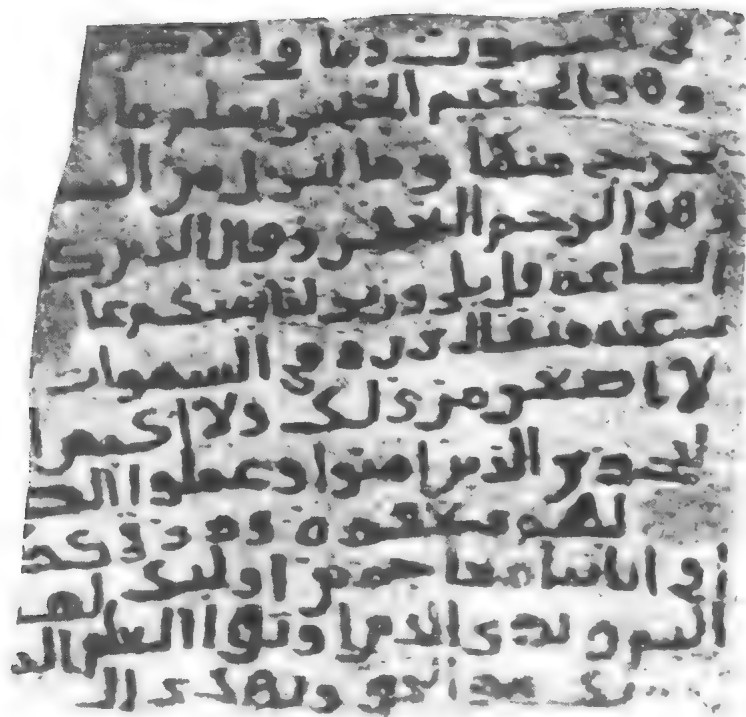 في السموت وما في
وهو الحكيم الخبير يعلم ما
يخرج منها وما ينزل من السـ
وهو الرحيم الغفور وقالا الذين كـ
الساعه قل بلى وربي لتاتينكم عا
عنه مثقال ذره في السموات
لا اصغر من ذلك ولا اكبر ا
ليجزي الذين امنوا وعملوا الصـ
لهم مغفره ورزق كر
في ايتنا معجزين اوليك لهم
اليم ويرى الذين اوتوا العلم الذ
ربك هو الحق ويهدي الى